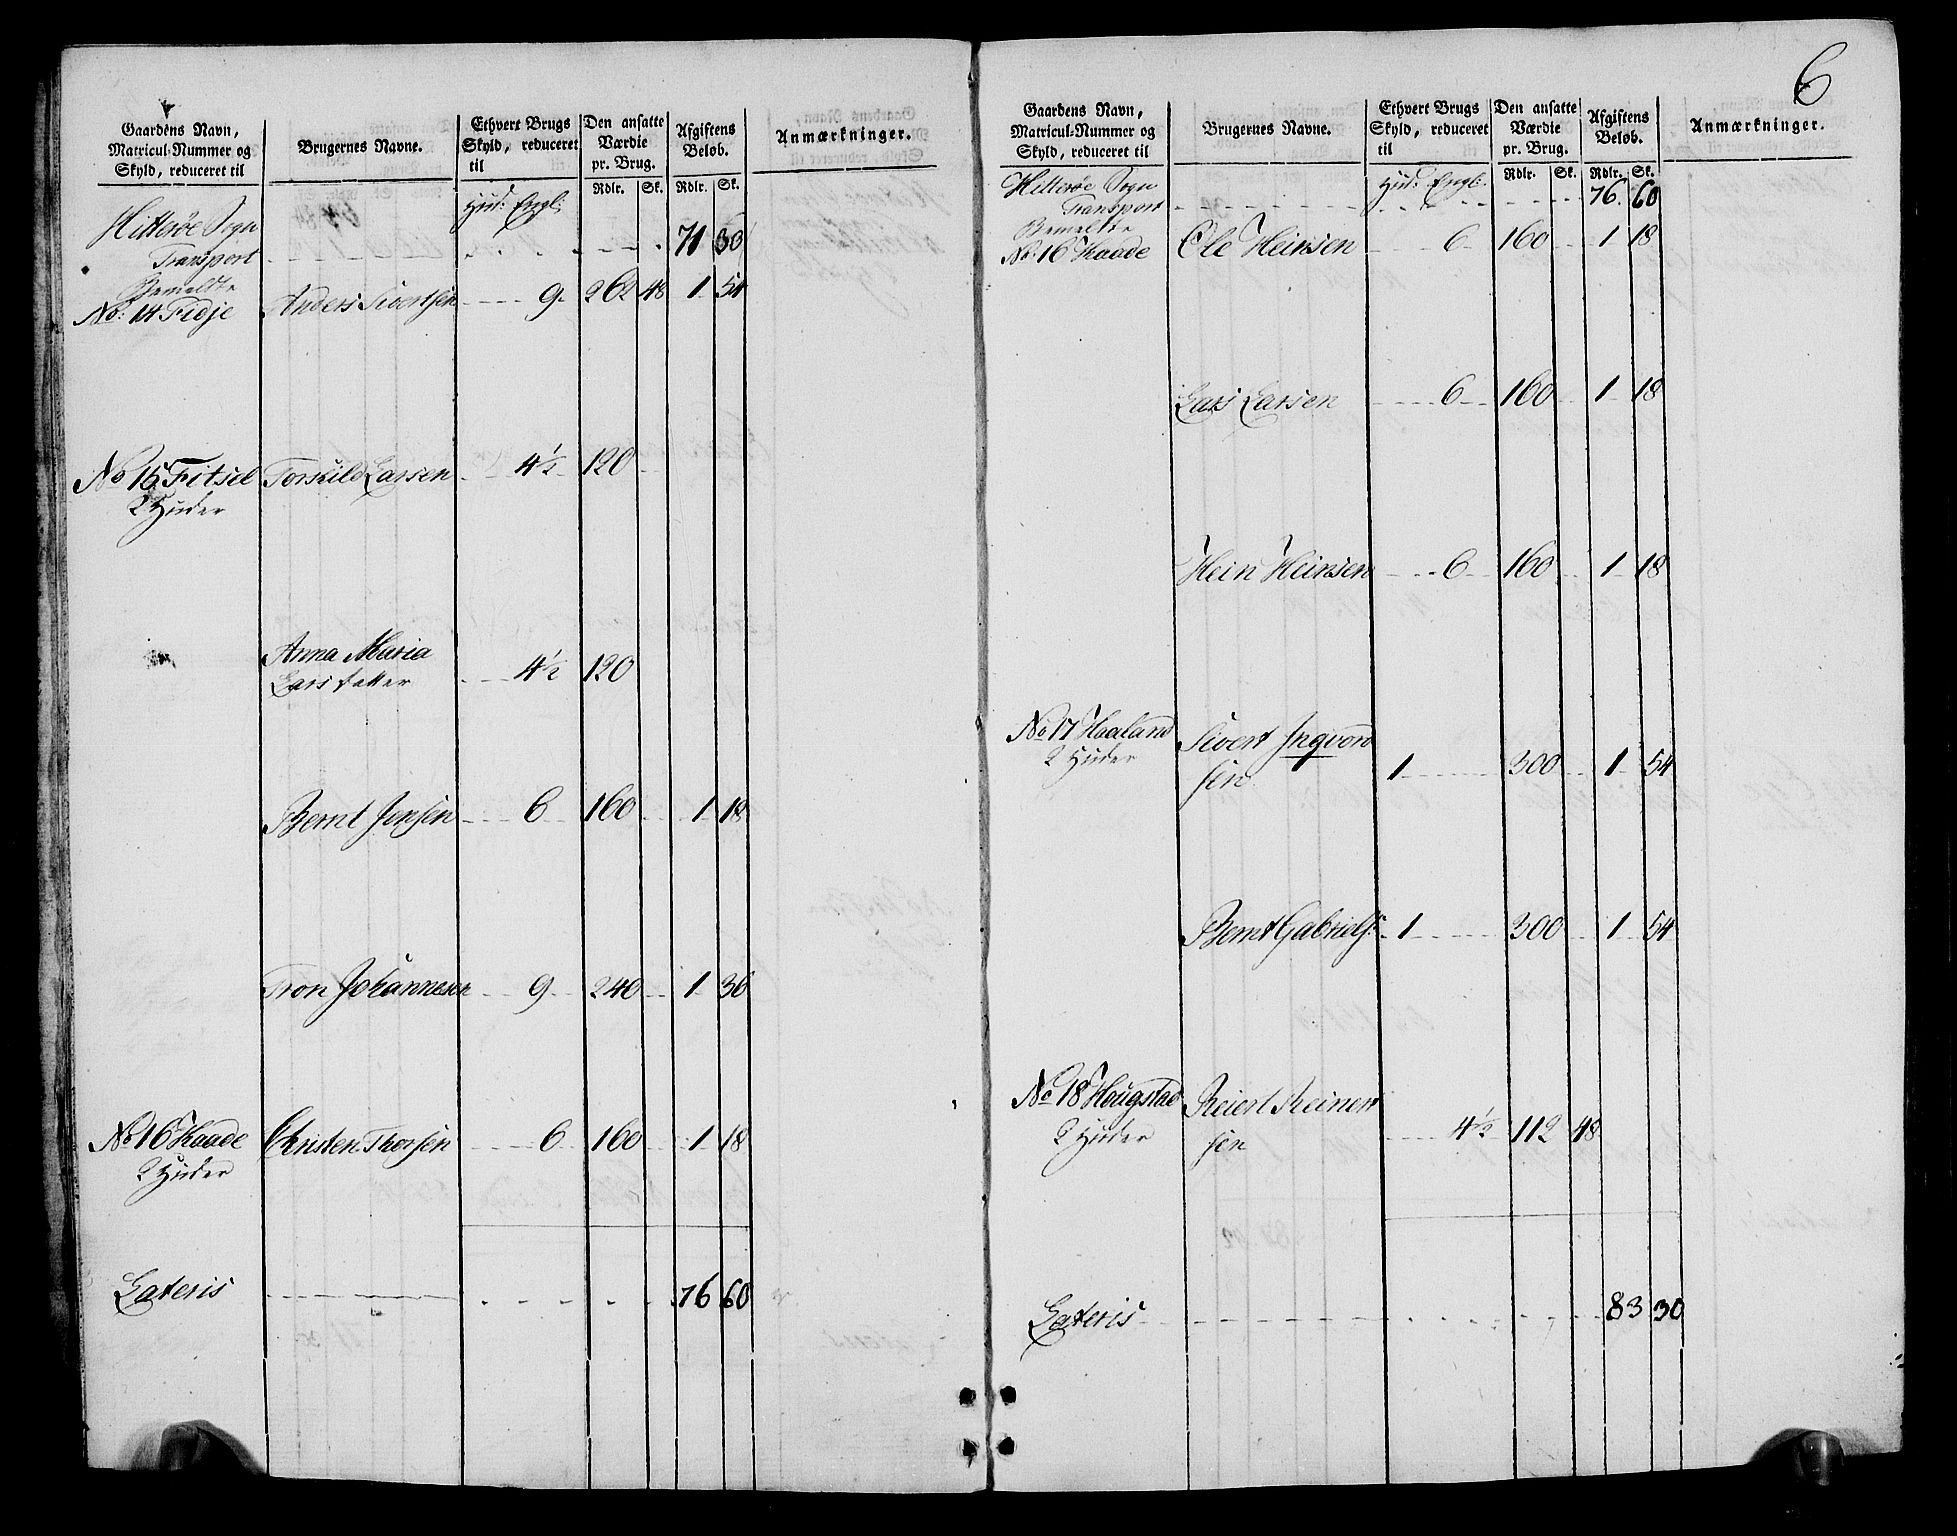 Gaardens Navn,
Matricul-Nummer og
Skyld, reduceret til
Brugernes Navne.
Ethvert Brugs
Skyld, reduceret
til
Den ansatte
Værdie
pr. Brug.
Rdlr. Sk.
Afgiftens
Beløb.
Rdlr. Sk.
Anmærkninger.
Hud: Engl:
Hitterøe Sogn
Transport 71 30
Bemeldte
No: 14 Fidje Anders Sivertsen 9 262 48 1 54
No 15 Fitsel Torkild Larsen 4½ 120
2 Huder
Anna Maria
Lars datter 4½ 120
Bernt Jensen 6 160 1 18
Tron Johannesen 9 240 1 36
No 16 Kaade Christen Thorsen 6 160 1 18
2 Huder
Lateris 76 60
6
Gaardens Navn,
Matricul-Nummer og
Skyld, reduceret til
Brugernes Navne.
Ethvert Brugs
Skyld, reduceret
til
Den ansatte
Værdie
pr. Brug.
Rdlr. Sk.
Afgiftens
Beløb.
Rdlr. Sk.
Anmærkninger.
Hud: Engl:
Hitterøe Sogn
Transport 76 60
Bemeldte
No: 16 Kaade Ole Heinsen 6 160 1 18
Lars Larsen 6 160 1 18
Hein Heinsen 6 160 1 18
No 17 Haaland Sivert Ingvord
2 Huder sen 1 300 1 54
Bernt Gabriels: 1 300 1 54
No 18 Hougstad Reiert Reiners
2 Huder sen 4½ 112 48
Lateris 83 30